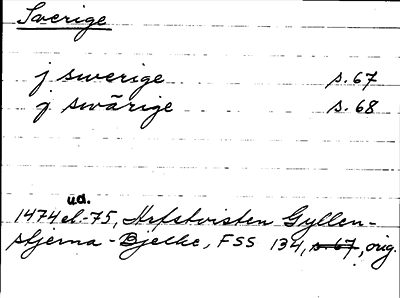 Sverige
j swerige s. 67
j swärige s. 68
u.d.
1474 el. -75, Arfstvisten Gyllen-
stjerna - Bjelke, FSS 134, s. 67, orig.